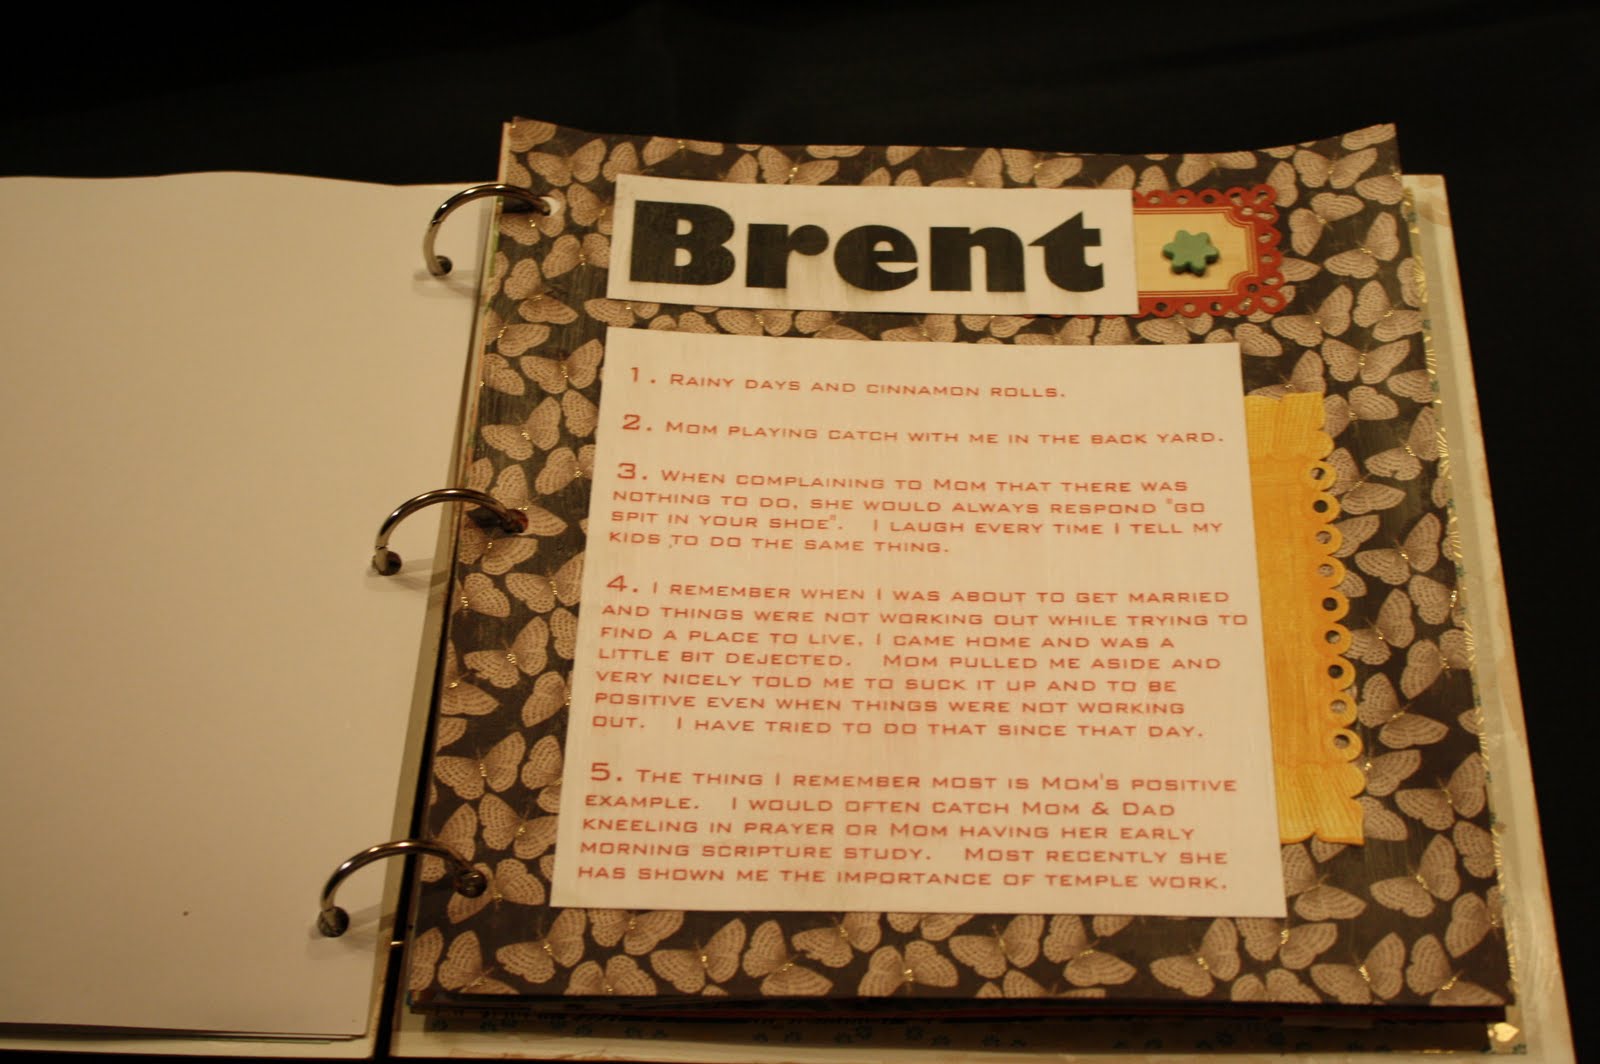 Brent
1. Rainy days and cinnamon rolls.
2. Mom playing catch with me in the back yard.
3. When complaining to Mom that there was
nothing to do, she would always respond "go
spit in your shoe". I laugh every time I tell my
kids to do the same thing.
4. I remember when I was about to get married
and things were not working out while trying to
find a place to live, I came home and was a
little bit dejected. Mom pulled me aside and
very nicely told me to suck it up and to be
positive even when things were not working
out. I have tried to do that since that day.
5. The thing I remember most is Mom's positive
example. I would often catch Mom & Dad
kneeling in prayer or Mom having her early
morning scripture study. Most recently she
has shown me the importance of temple work.